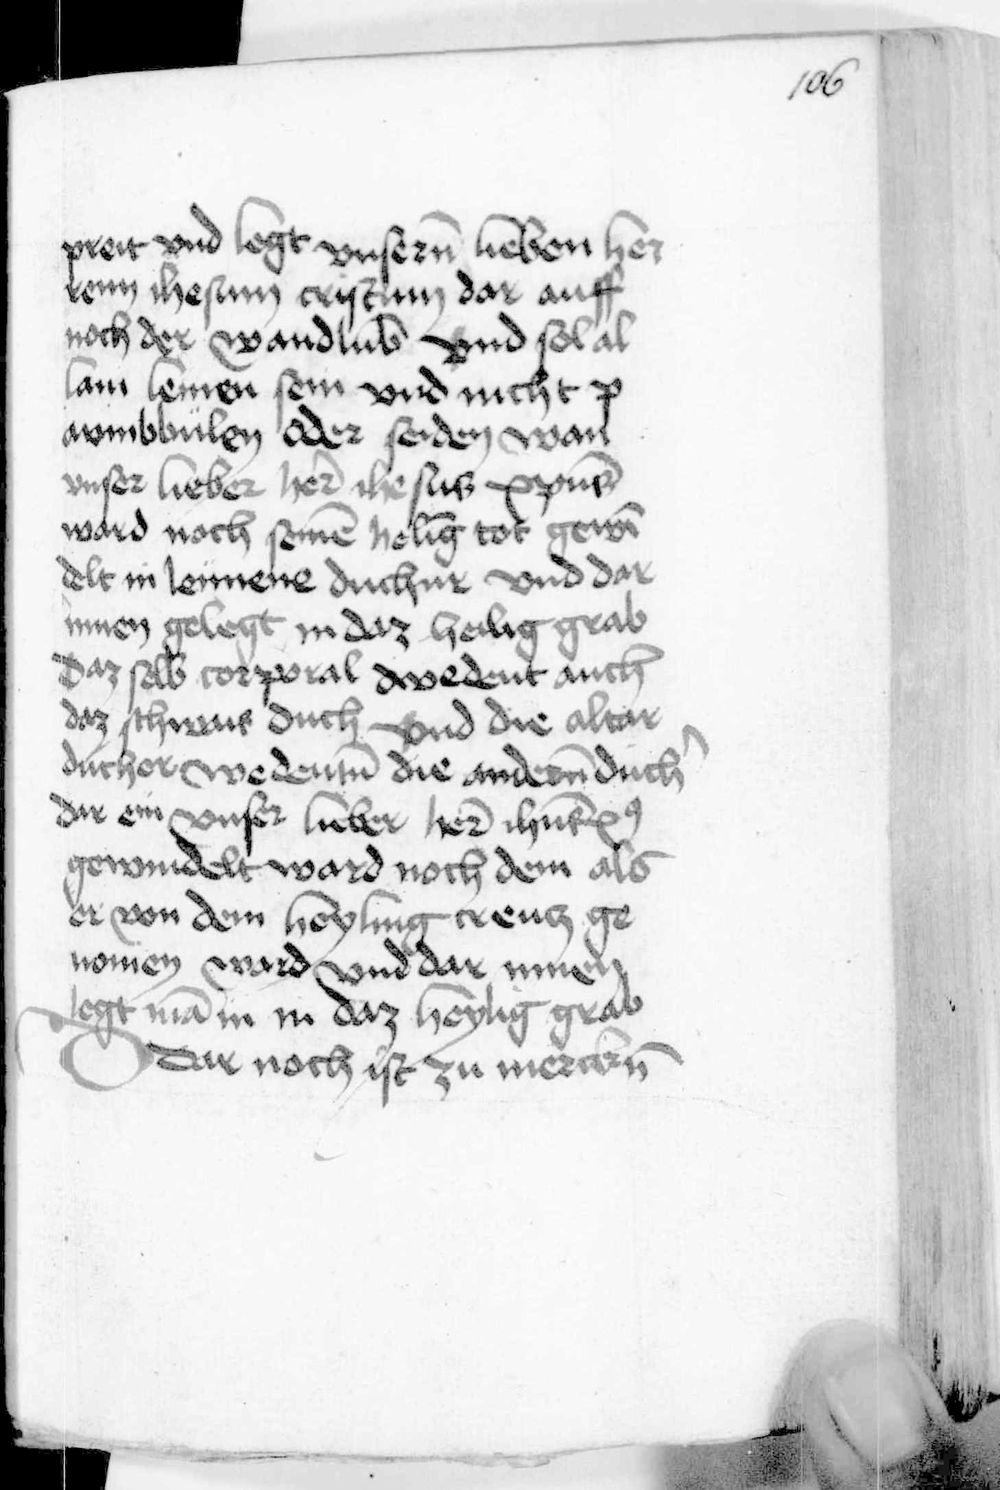 106
preit vnd legt vnsern̄ lieben her
renn ihesum cristum dar auff
noch der wandlūb vnd sol al
lain leinen sein vnd nicht p
avmbbūlen oder seiden wan
vnser lieber her̄ ihesus xpūs
ward noch seinē heiliḡ tot gewī
delt in leinene ducher vnd dar
innen gelegt in daz heilig grab
Daz selb corporal wedeut auch
daz schweis duch vnd die altar
ducher wedeutn̄ die andern̄ duch
dar ein vnser lieber her̄ ihūs xꝰ
gewindelt ward noch dem als
er von dem heyling creucz ge
nomen ward vnd dar innen
legt mā in in daz heylig grab
Dar noch ist zu merckn̄